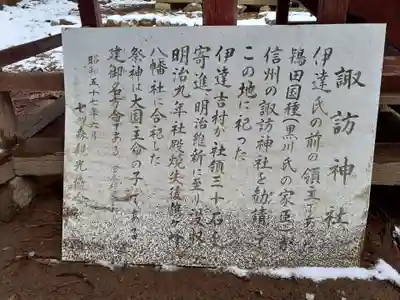 諏訪神社
伊達氏の前の領主であった
鴇田国種（黒川氏の家臣）が
信州の諏訪神社を勧請して
この地に祀った
伊達吉村が社領三十石を
寄進、明治維新に至り没収
明治九年社殿焼失後鶴ケ峰
八幡社に合祀した
祭神は大国主命の子である
建御名方命である
昭和五十七年六月
七ツ森観光協会